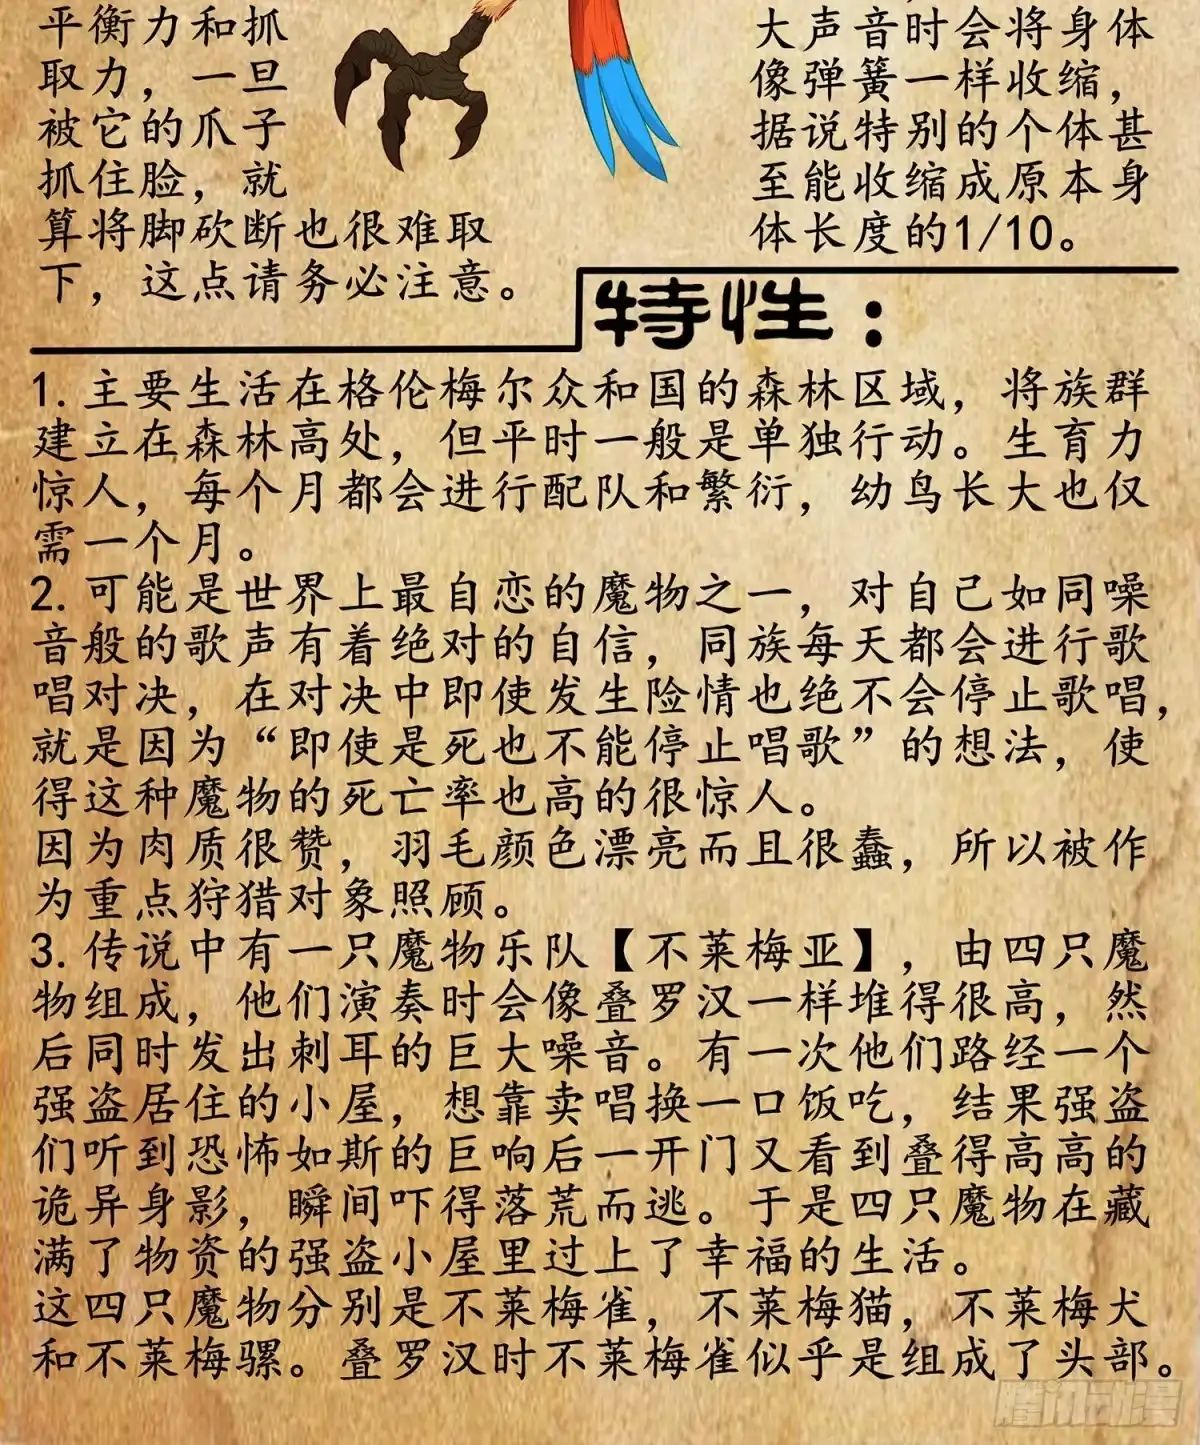 平衡力和抓
取力，一旦
被它的爪子
抓住脸，就
算将脚砍断也很难取
下，这点请务必注意。
大声音时会将身体
像弹簧一样收缩，
据说特别的个体甚
至能收缩成原本身
体长度的1/10。
特性：
1. 主要生活在格伦梅尔众和国的森林区域，将族群
建立在森林高处，但平时一般是单独行动。生育力
惊人，每个月都会进行配队和繁衍，幼鸟长大也仅
需一个月。
2. 可能是世界上最自恋的魔物之一，对自己如同噪
音般的歌声有着绝对的自信，同族每天都会进行歌
唱对决，在对决中即使发生险情也绝不会停止歌唱，
就是因为“即使是死也不能停止唱歌”的想法，使
得这种魔物的死亡率也高的很惊人。
因为肉质很赞，羽毛颜色漂亮而且很蠢，所以被作
为重点狩猎对象照顾。
3. 传说中有一只魔物乐队【不莱梅亚】，由四只魔
物组成，他们演奏时会像叠罗汉一样堆得很高，然
后同时发出刺耳的巨大噪音。有一次他们路经一个
强盗居住的小屋，想靠卖唱换一口饭吃，结果强盗
们听到恐怖如斯的巨响后一开门又看到叠得高高的
诡异身影，瞬间吓得落荒而逃。于是四只魔物在藏
满了物资的强盗小屋里过上了幸福的生活。
这四只魔物分别是不莱梅雀，不莱梅猫，不莱梅犬
和不莱梅骡。叠罗汉时不莱梅雀似乎是组成了头部。
腾讯动漫